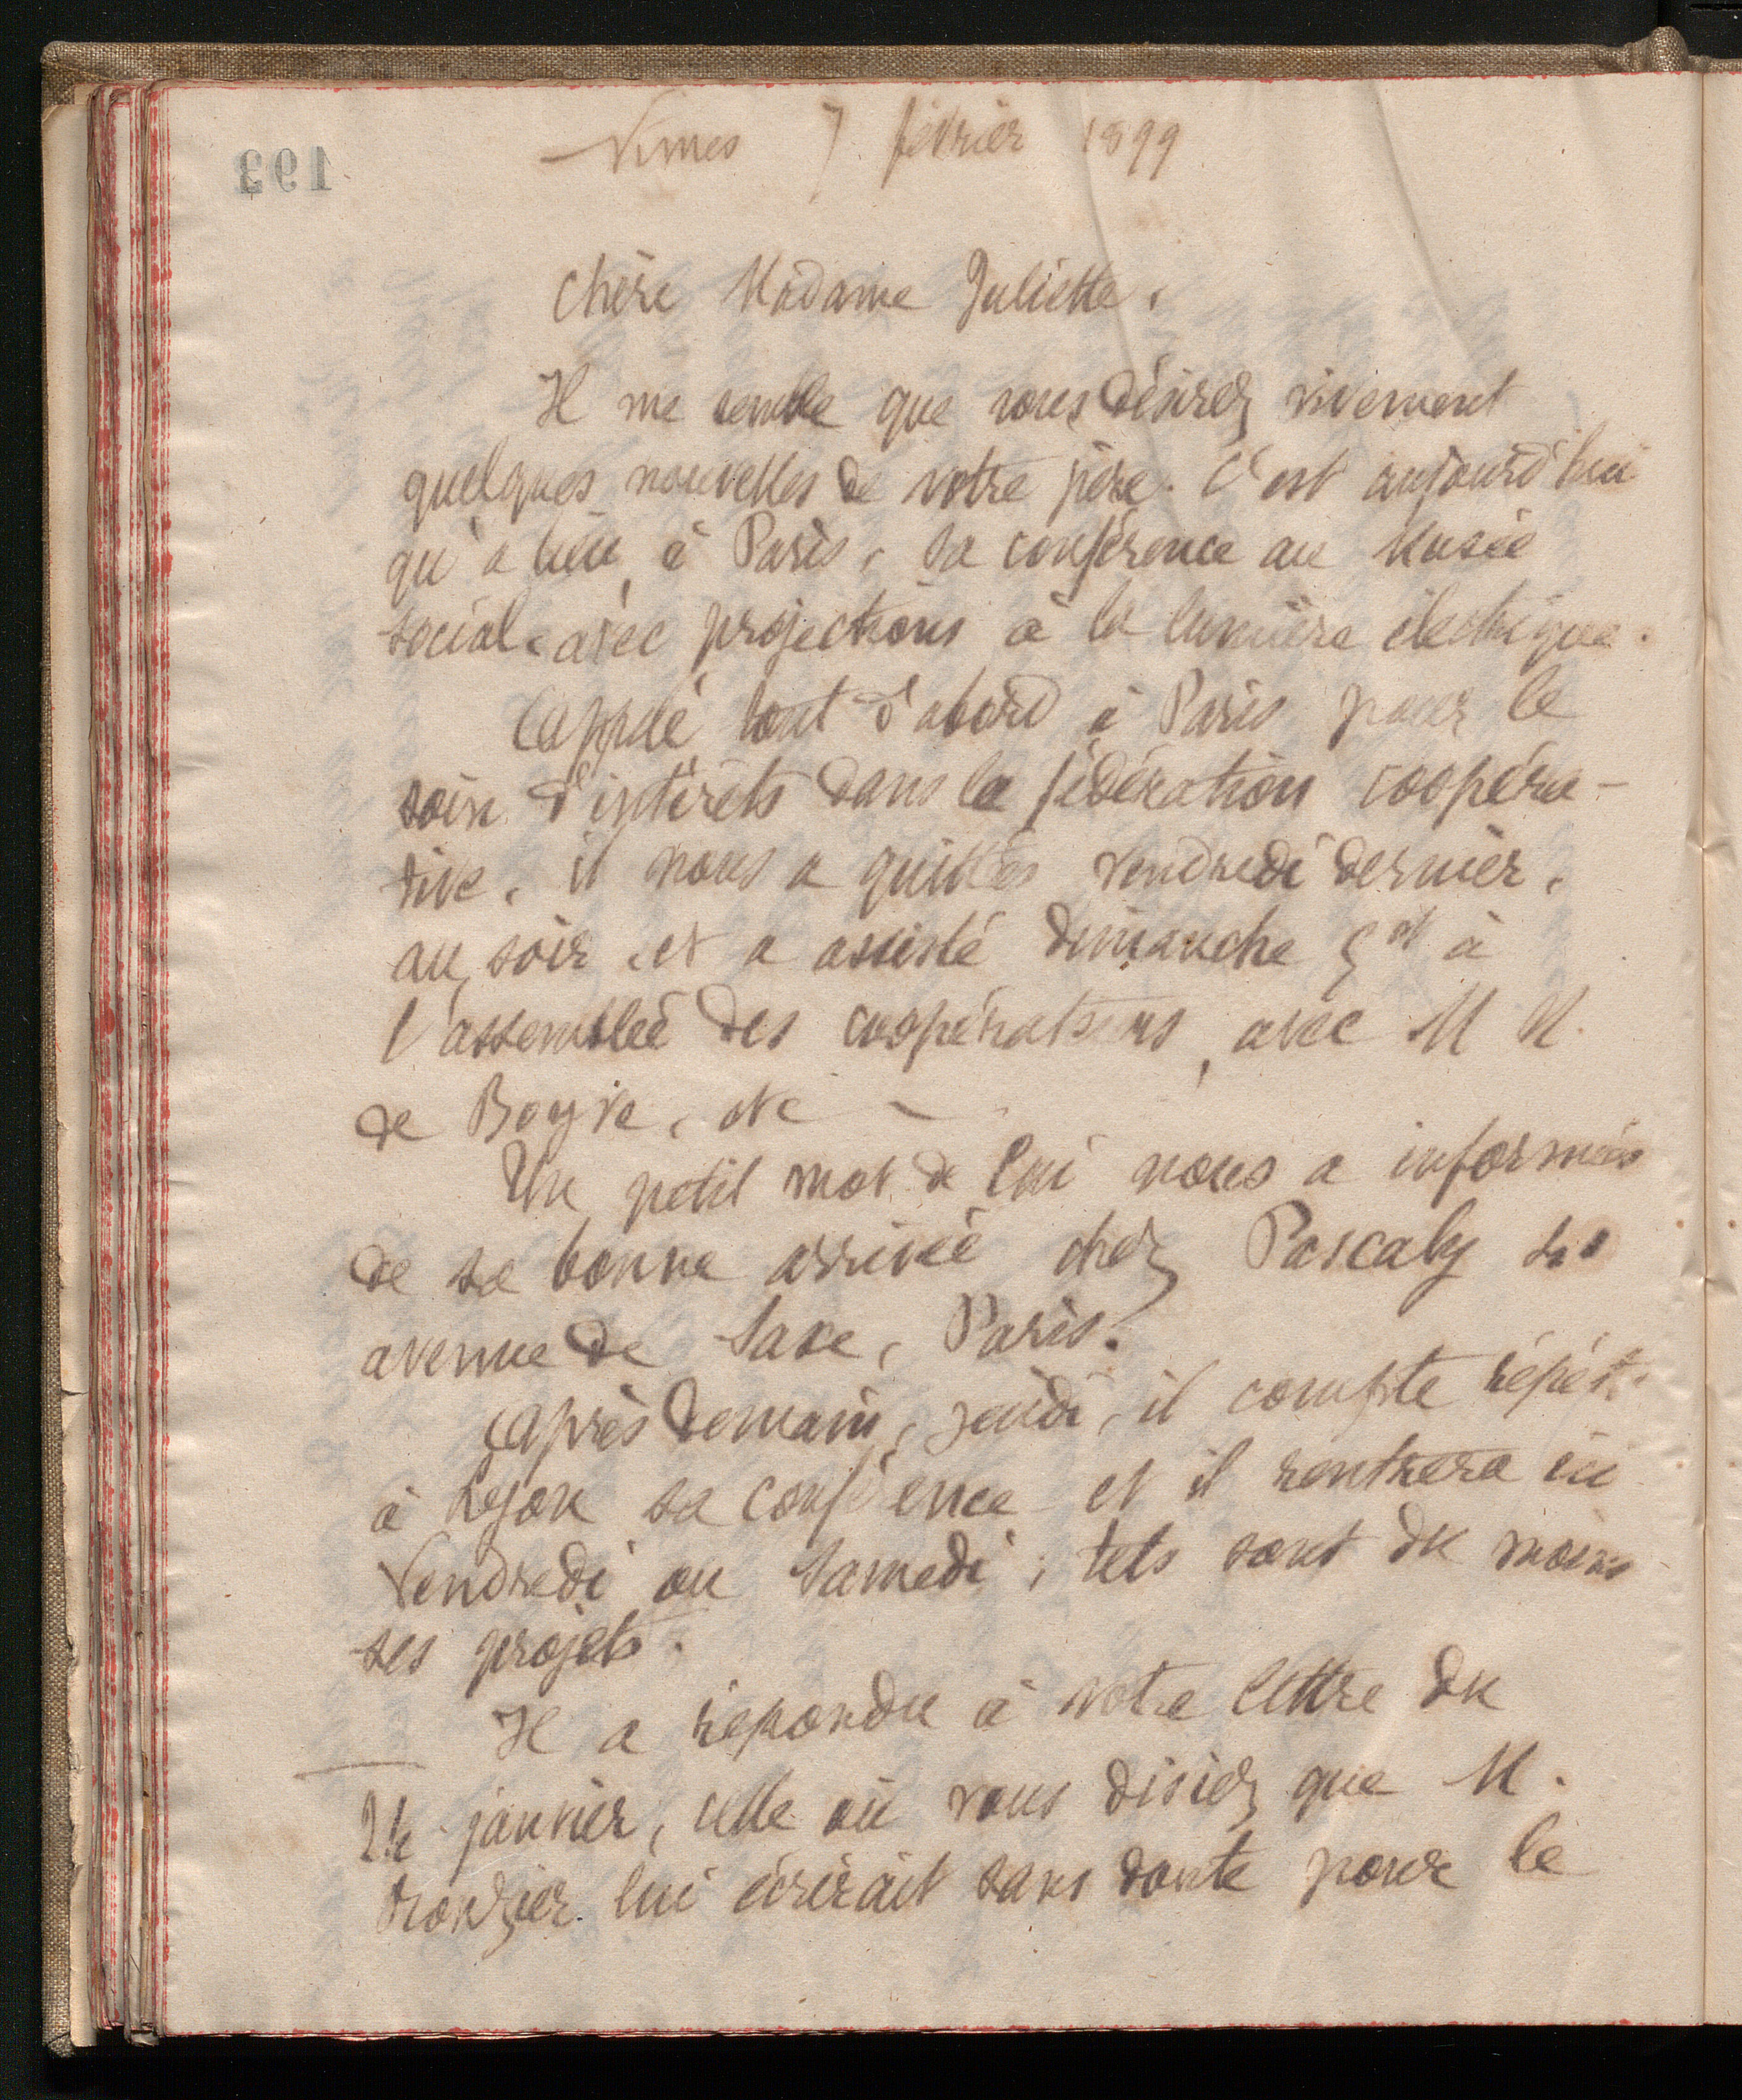 193
Nimes 7 février 1899
Chère Madame Juliette,
Il me semble que vous désirez vivement
quelques nouvelles de votre père. C'est aujourd'hui
qu'a lieu, à Paris, sa conférence au Musée
social, avec projections à la lumière électrique.
Appelé tout d'abord à Paris pour le
soin d'intérêts dans la fédération coopéra-
tive, il nous a quittés vendredi dernier,
au soir, et a assisté dimanche à
l'assemblée des coopérateurs, avec M M.
de Boyve, etc -
Un petit mot de lui nous a informés
de sa bonne arrivée chez Pascaly
avenue de Saxe, Paris.
Après demain, jeudi, il compte
à Lyon sa conférence et il rentrera ici
Vendredi ou Samedi ; tels sont du moins
ses projets.
Il a répondu à votre lettre du
janvier, celle où vous disiez que M.
lui écrirait sans doute pour le